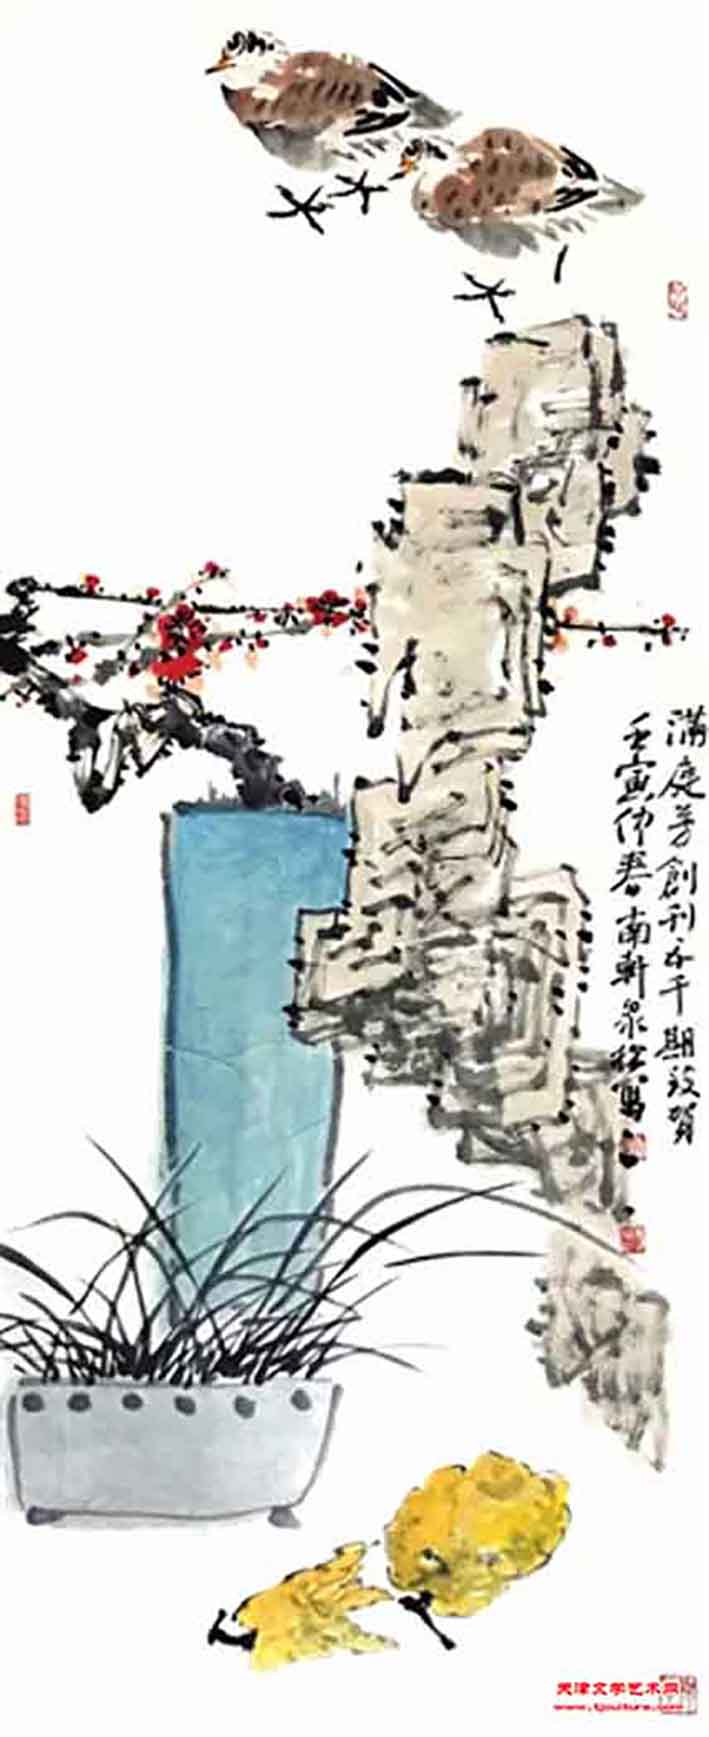 满庭芳創刊五千期致贺
壬寅仲春南軒泉松写
天津文学艺术网
www.tjculture.com